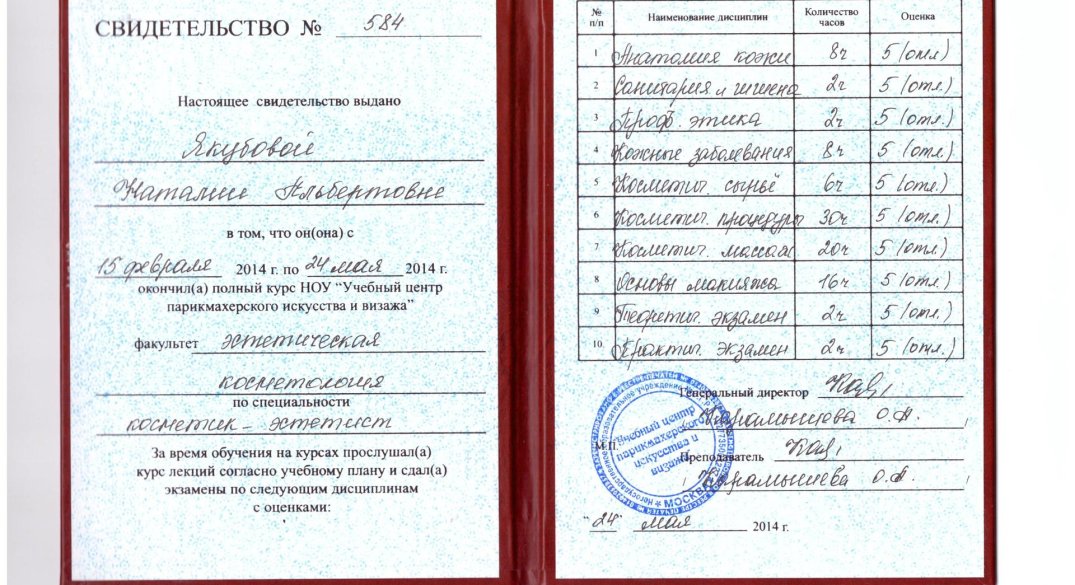 СВИДЕТЕЛЬСТВО № 584
Настоящее свидетельство выдано
Якубовой
Наталии Альбертовне
в том, что он(она) с
15 февраля 2014 г. по 24 мая 2014 г.
окончил(а) полный курс НОУ “Учебный центр
парикмахерского искусства и визажа”
факультет эстетическая
косметология
по специальности
косметик - эстетист
За время обучения на курсах прослушал(а)
курс лекций согласно учебному плану и сдал(а)
экзамены по следующим дисциплинам
с оценками:
№ п/п Наименование дисциплин Количество часов Оценка
1 Анатомия кожи 8ч 5 (отл)
2 Санитария и гигиена 2ч 5 (отл.)
3 Проф. этика 2ч 5 (отл.)
4 Кожные заболевания 8ч 5 (отл.)
5 Косметич. сырьё 6ч 5 (отл.)
6 Косметич. процедуры 30ч 5 (отл.)
7 Косметич. массаж 20ч 5 (отл.)
8 Основы макияжа 16ч 5 (отл.)
9 Теоретич. экзамен 2ч 5 (отл.)
10. Практич. экзамен 2ч 5 (отл.)
Генеральный директор
О.А.
М.П.
Преподаватель
О.А.
Учебный центр
парикмахерского
искусства и
визажа
МОСКВА
"24" мая 2014 г.